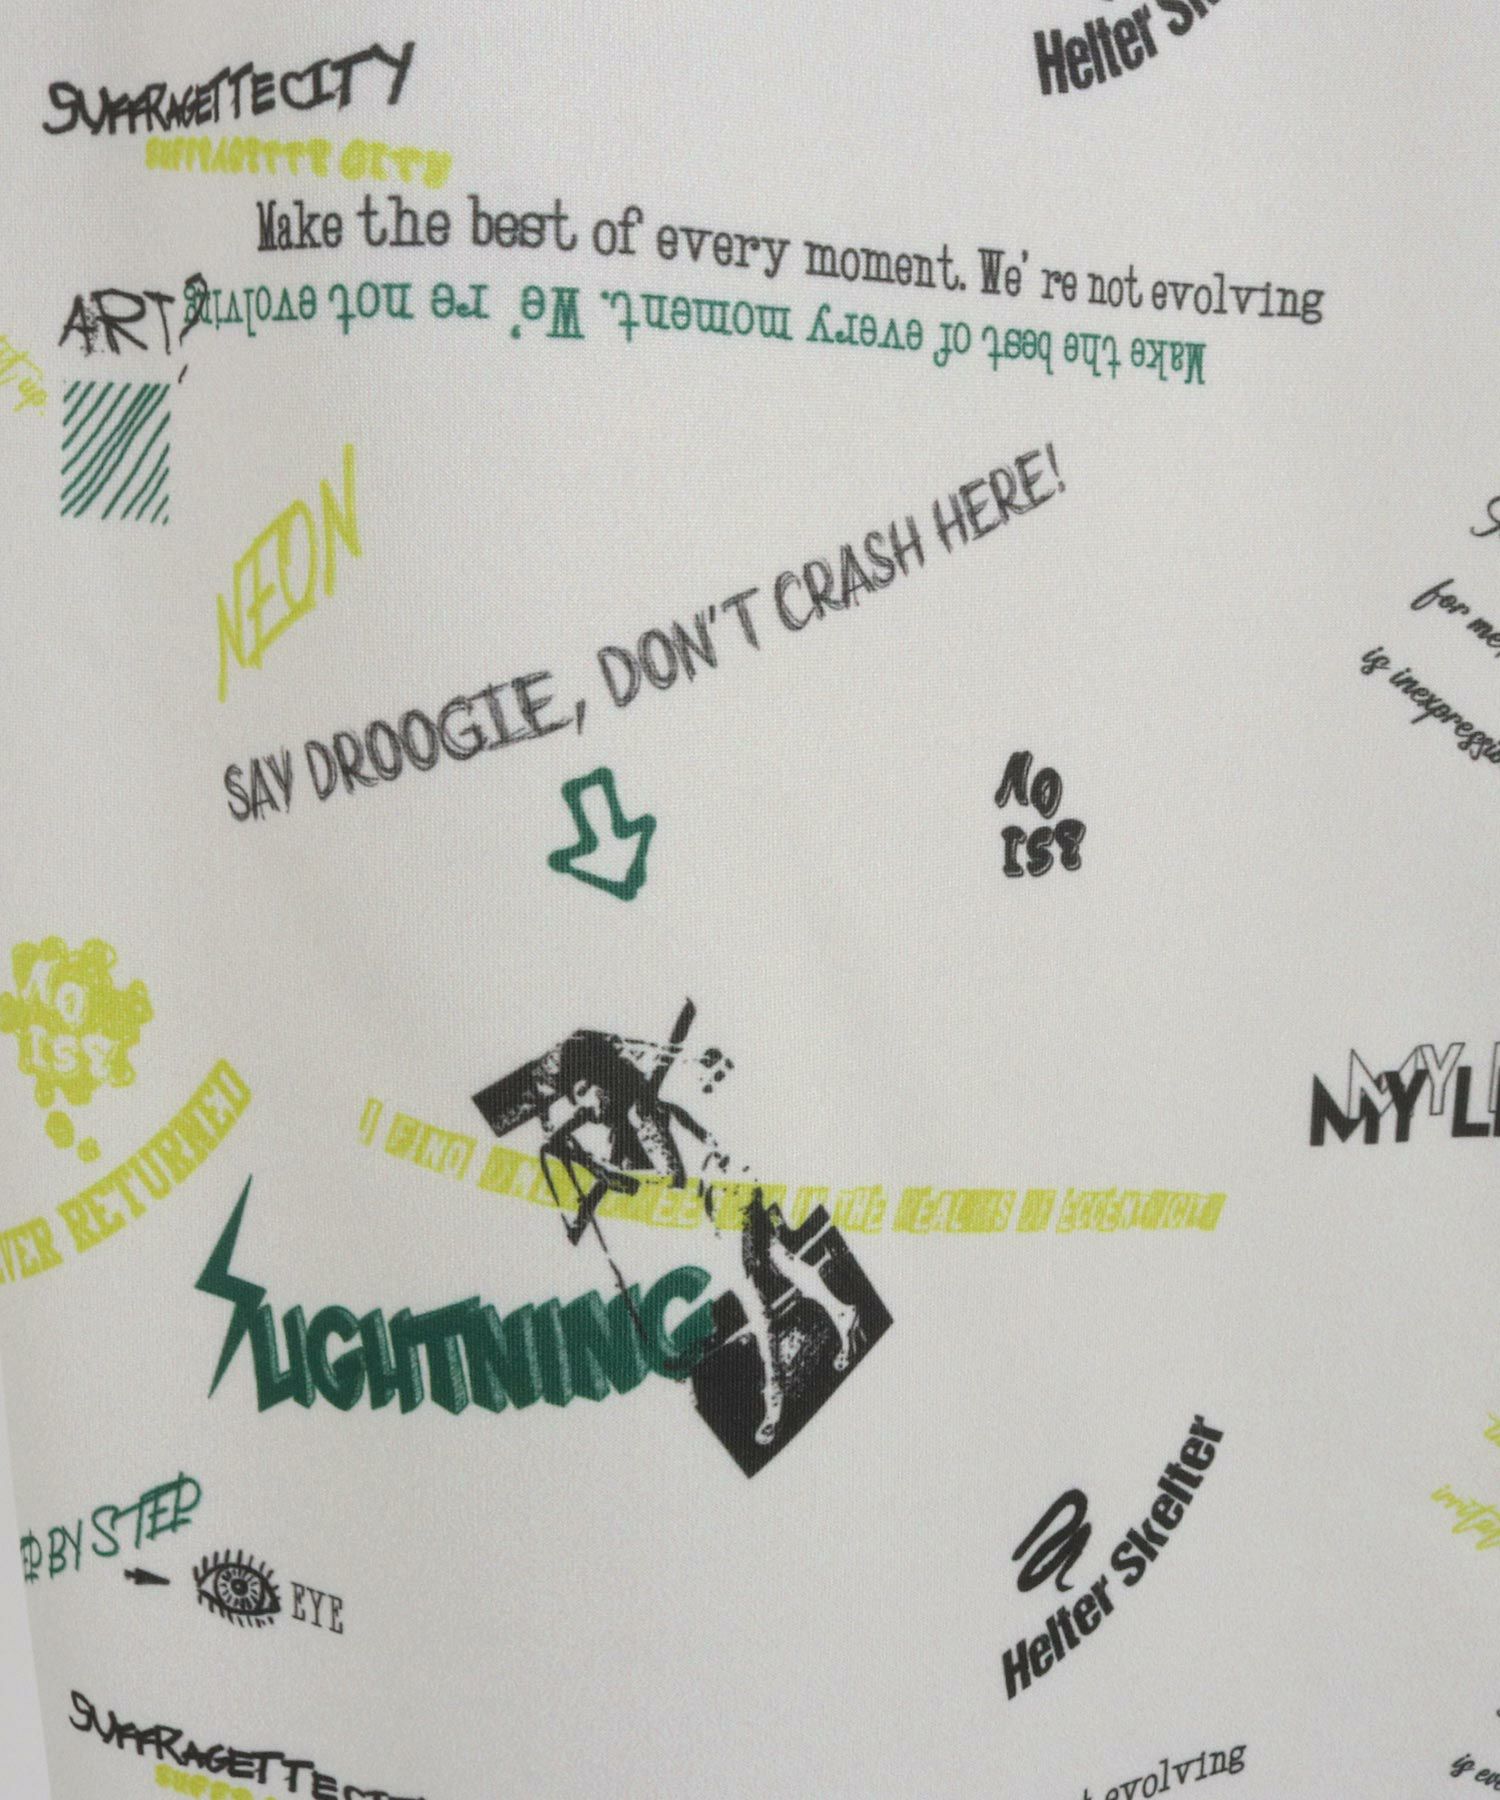 Helter
SUFFRAGETTECITY
SUFFRAGETTE CITY
Make the best of every moment. We' re not evolving
Make the best of every moment. We' re not evolving
ART?
up.
NEON
SAY DROOGIE, DON'T CRASH HERE!
for me,
is
NO
ISE
NO
ISE
RETURNED
I FIND ONLY FREEDOM IN THE REALMS OF ECCENTRICITY
MY
LIGHTNING
BY STEP
EYE
Helter Skelter
SUFFRAGETTECITY
evolving
is